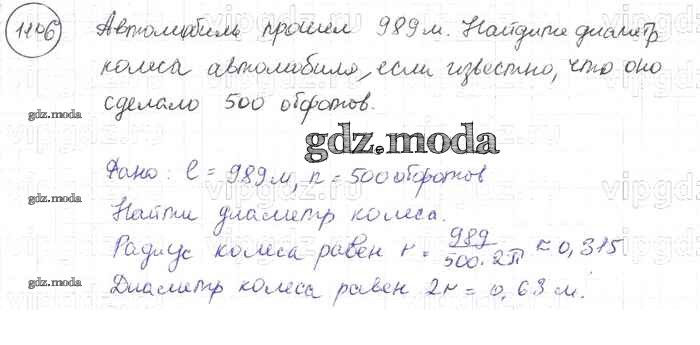 1106 Автомобиль прошел 989 м. Найдите диаметр
колеса автомобиля, если известно, что оно
сделало 500 оборотов.
gdz.moda
gdz.moda
Дано: l = 989 м, n = 500 оборотов
gdz.moda
Найти диаметр колеса.
Радиус колеса равен r = 989 / 500·2π ≈ 0,315
Диаметр колеса равен 2r = 0,63 м.
gdz.moda
vipgdz
vipgdz
vipgdz
vipgdz